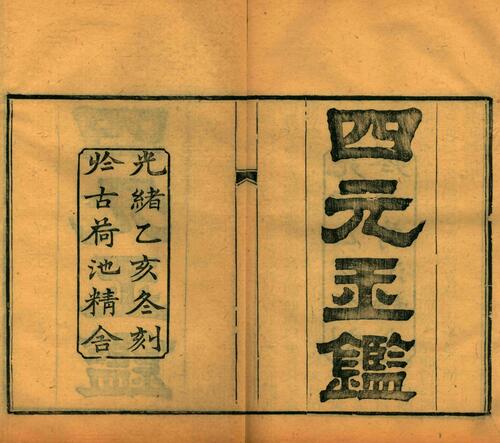 四元玉鑑
光緒乙亥冬刻
於古荷池精舍